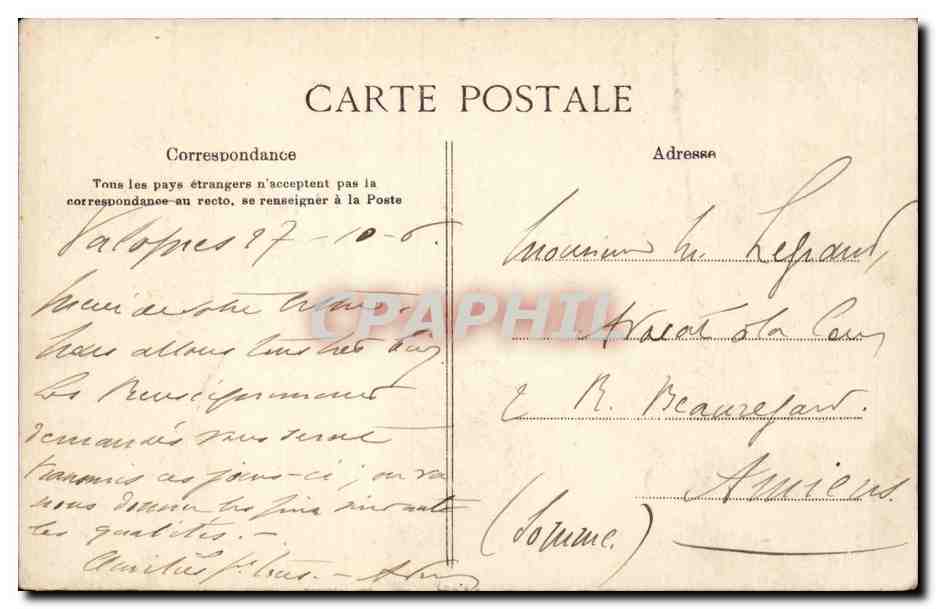 CARTE POSTALE
Correspondance
Tous les pays étrangers n'acceptent pas la
correspondance au recto, se renseigner à la Poste
Valognes 27-10-6.
Merci de votre lettre.
Nous allons tous très bien.
Les Renseignements
demandés vous seront
transmis ces jours-ci, on va
nous donner les prix suivant
les qualités. -
Amitiés pr tous. -
Adresse
Monsieur M. Legrand,
Avocat à la Cour
2 R. Beauregard.
Amiens.
(Somme.)
CPAPHIL